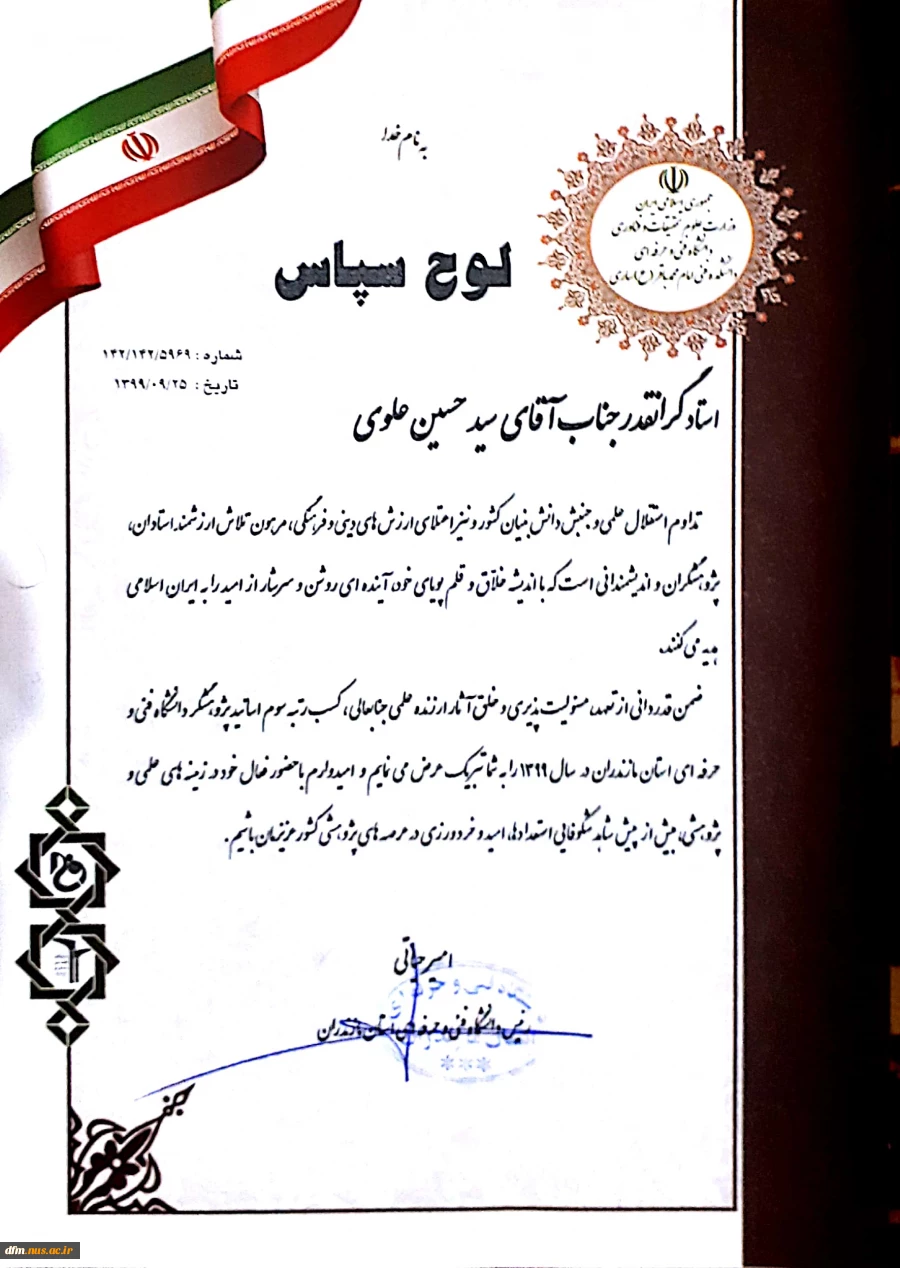 به نام خدا
جمهوری اسلامی ایران
وزارت علوم تحقیقات و فناوری
دانشگاه فنی و حرفه ای
دانشکده فنی امام محمد باقر (ع) ساری
لوح سپاس
شماره : ۱۴۲/۱۴۲/۵۹۶۹
تاریخ : ۱۳۹۹/۰۹/۲۵
استاد گرانقدر جناب آقای سید حسین علوی
تداوم استقلال علمی و جنبش دانش بنیان کشور و نیز اعتلای ارزش های دینی و فرهنگی، مرهون تلاش ارزشمند استادان،
پژوهشگران و اندیشمندانی است که با اندیشه خلاق و قلم پویای خود آینده ای روشن و سرشار از امید را به ایران اسلامی
هدیه می کنند.
ضمن قدردانی از تعهد، مسئولیت پذیری و خلق آثار ارزنده علمی جنابعالی، کسب رتبه سوم اساتید پژوهشگر دانشگاه فنی و
حرفه ای استان مازندران در سال ۱۳۹۹ را به شما تبریک عرض می نمایم و امیدوارم با حضور فعال خود در زمینه های علمی و
پژوهشی، بیش از پیش شاهد شکوفایی استعدادها، امید و خردورزی در عرصه های پژوهشی کشور عزیزمان باشیم.
رئیس دانشگاه فنی و حرفه ای استان مازندران
dfm.nus.ac.ir